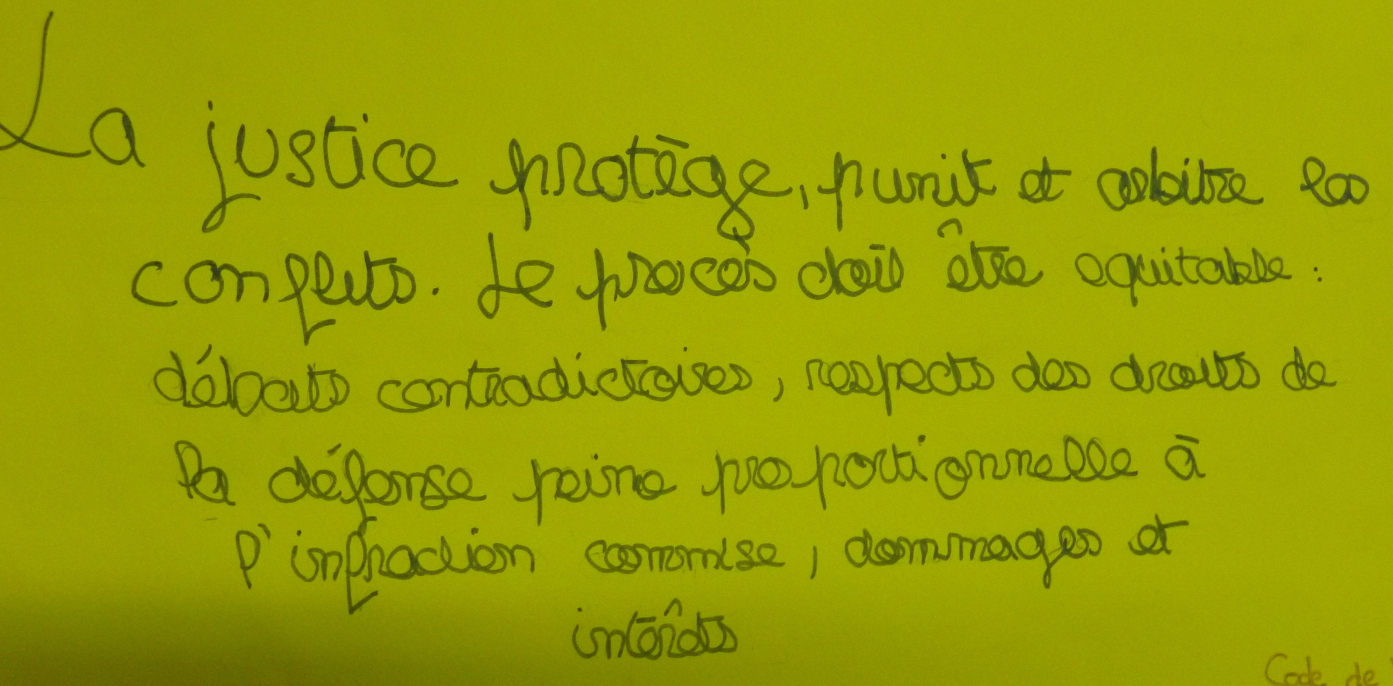 La justice protège, punit et arbitre les
conflits. Le procès doit être equitable :
débats contradictoires, respects des droits de
la défense peine proportionnelle à
l'infraction commise, dommages et
intérêts
Code de